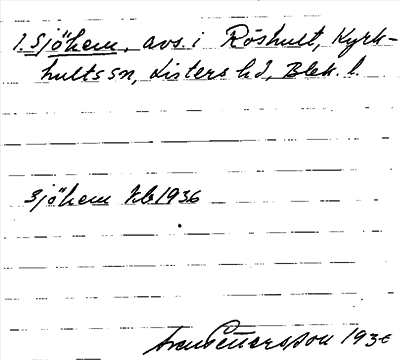 1. Sjöhem, avs. i Röshult, Kyrk-
hults sn, Listers hd, Blek. l.
Sjöhem Kb 1936
Sven Pettersson 1936